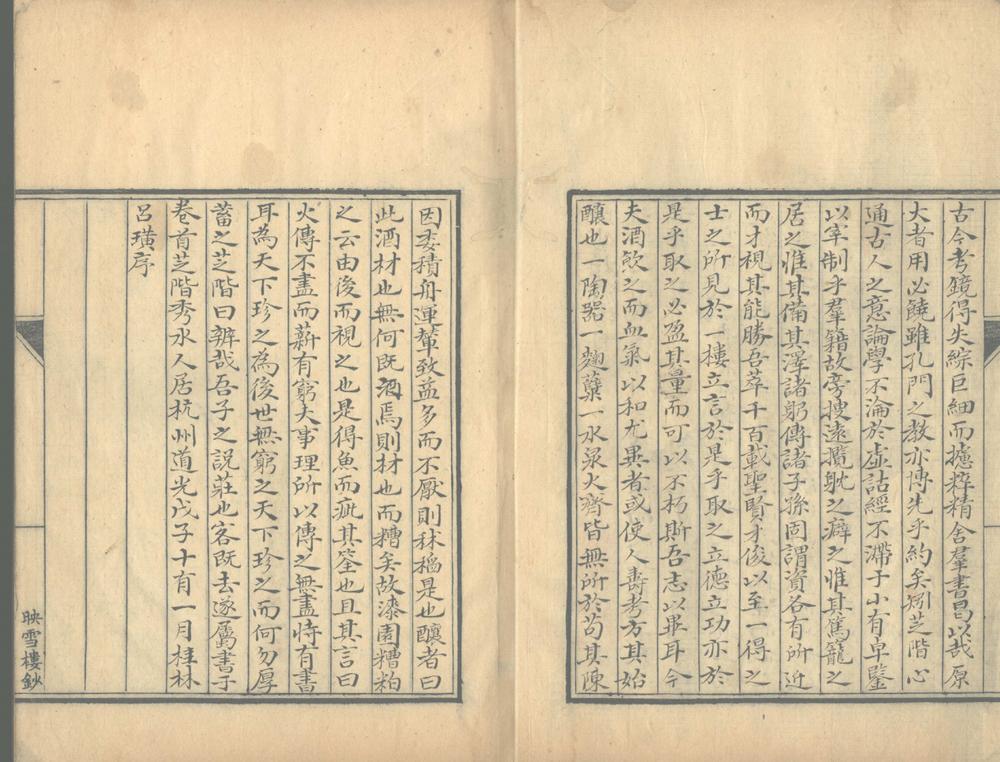 古今考鏡得失綜巨細而擷粹精舍羣書曷以哉原
大者用必饒雖孔門之教亦博先乎約矣矧芝階心
通古人之意論學不淪於虛詁經不滯于小有卓鑒
以宰制乎羣籍故旁搜遠攬躭之癖之惟其篤籠之
居之惟其備其澤諸躬傳諸子孫固謂資各有所近
而才視其能勝吾萃千百載聖賢才俊以至一得之
士之所見於一樓立言於是乎取之立德立功亦於
是乎取之必盈其量而可以不朽斯吾志以畢耳今
夫酒飲之而血氣以和尤異者或使人壽考方其始
釀也一陶器一麴糵一水泉火齊皆無所於苟其陳
因委積舟運輦致益多而不厭則秫稻是也釀者曰
此酒材也無何既酒焉則材也而糟矣故漆園糟粕
之云由後而視之也是得魚而疵其筌也且其言曰
火傳不盡而薪有窮夫事理所以傳之無盡恃有書
耳為天下珍之為後世無窮之天下珍之而何勿厚
蓄之芝階曰辨哉吾子之說莊也客既去遂屬書于
卷首芝階秀水人居杭州道光戊子十有一月桂林
呂璜序
映雪樓鈔